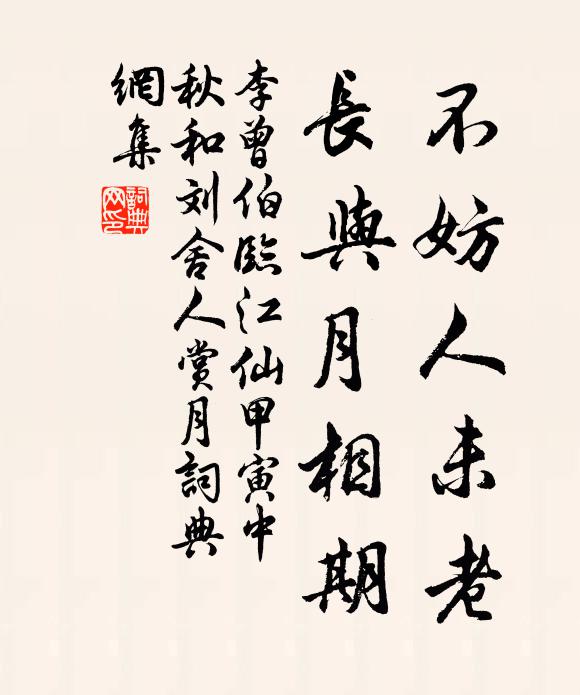 不妨人未老
長與月相期
李曾伯臨江仙甲寅中
秋和刘舍人賞月詞典
網集
詞典
网印